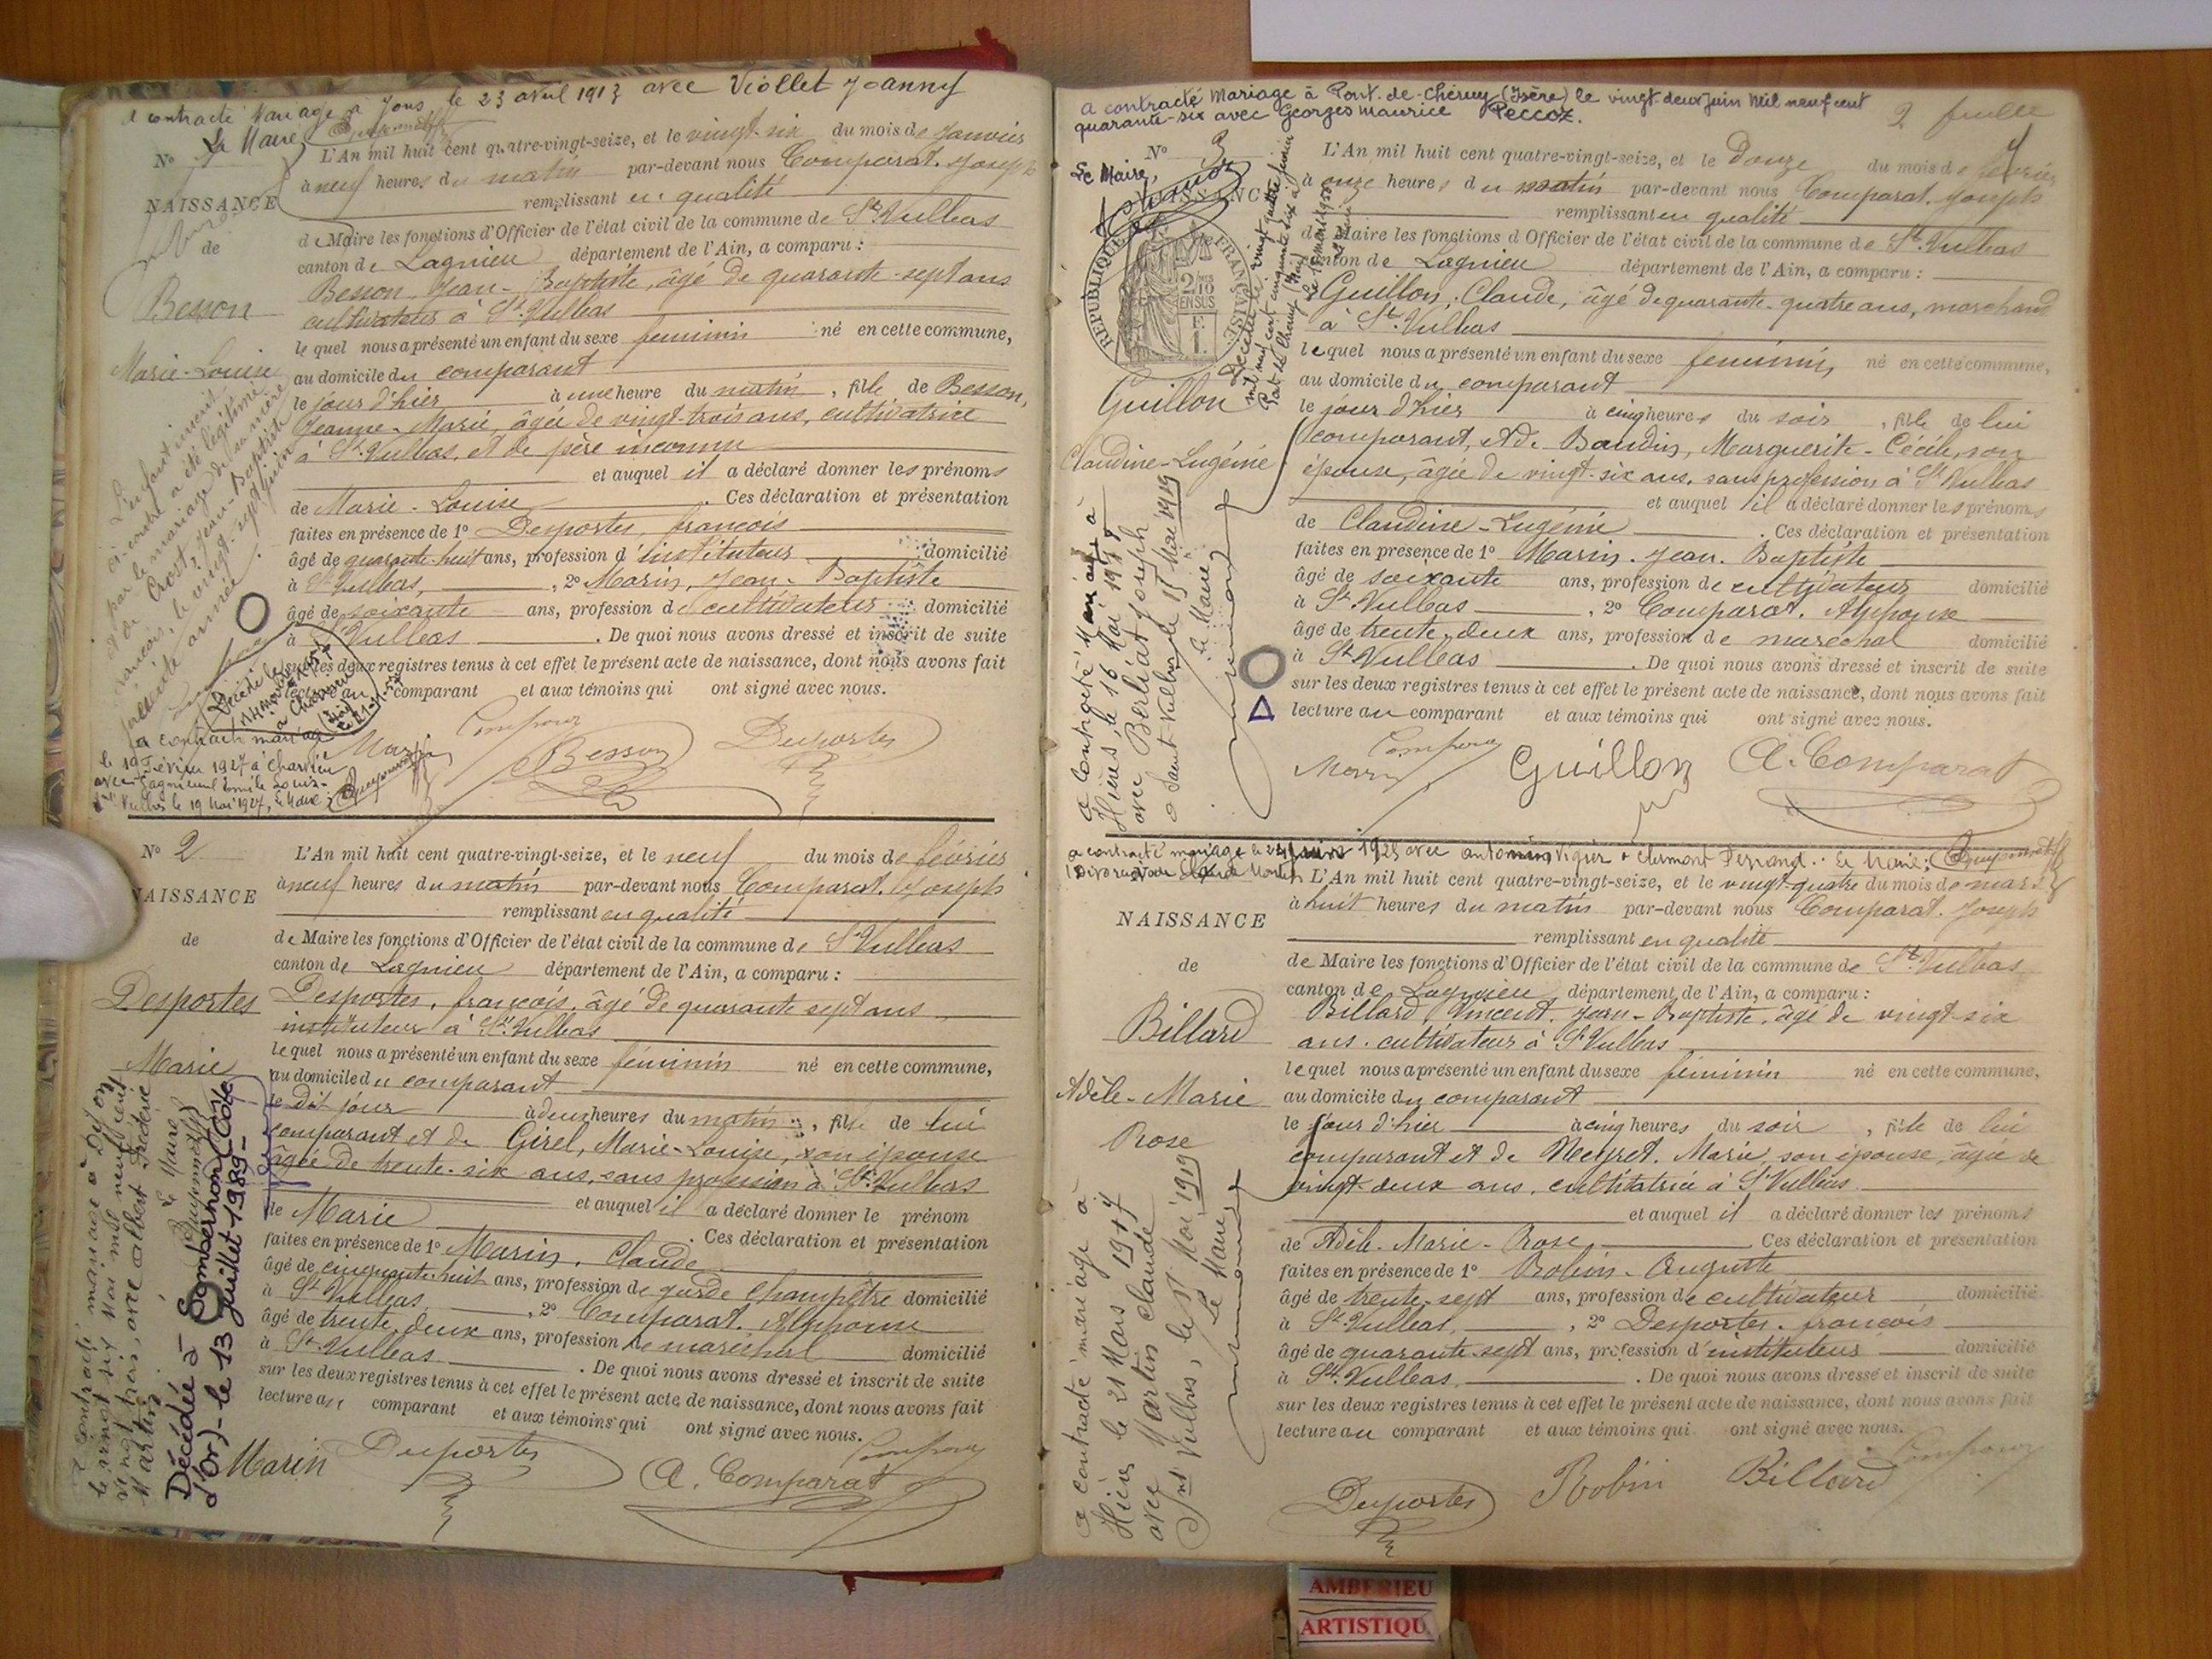 a contracté Mariage à Jons le 23 avril 1913 avec Viollet Joanny
Le Maire
No 1
NAISSANCE
de
Besson
Marie-Louise
L'An mil huit cent quatre-vingt-seize, et le vingt-six du mois de Janvier
à neuf heures du matin par-devant nous Comparat, Joseph
remplissant en qualité
de Maire les fonctions d'Officier de l'état civil de la commune de St Vulbas
canton de Lagnieu département de l'Ain, a comparu :
Besson Jean-Baptiste, âgé de quarante-sept ans
cultivateur à St Vulbas
lequel nous a présenté un enfant du sexe féminin né en cette commune,
au domicile du comparant
le jour d'hier à une heure du matin, fille de Besson,
Jeanne-Marie, âgée de vingt-trois ans, cultivatrice
à St Vulbas, et de père inconnu
et auquel il a déclaré donner les prénoms
de Marie-Louise. Ces déclaration et présentation
faites en présence de 1o Desportes, françois
âgé de quarante-huit ans, profession d'instituteur domicilié
à St Vulbas, 2o Marin, Jean-Baptiste
âgé de soixante ans, profession de cultivateur domicilié
à St Vulbas. De quoi nous avons dressé et inscrit de suite
sur les deux registres tenus à cet effet le présent acte de naissance, dont nous avons fait
lecture au comparant et aux témoins qui ont signé avec nous.
L'enfant inscrit
ci-contre a été légitimé
par le mariage de sa mère
et de Crost, Jean-Baptiste
françois, le vingt-sept juin
Décédée le
14 novembre 1957
à Charvieu
(Isère)
a contracté mariage
le 19 Février 1927 à Charvieu
avec Gagnieul Emile Louis
St Vulbas le 19 Mai 1927, Le Maire
Marin Besson Desportes
No 2
NAISSANCE
de
Desportes
Marie
L'An mil huit cent quatre-vingt-seize, et le neuf du mois de février
à neuf heures du matin par-devant nous Comparat, Joseph
remplissant en qualité
de Maire les fonctions d'Officier de l'état civil de la commune de St Vulbas
canton de Lagnieu département de l'Ain, a comparu :
Desportes, françois, âgé de quarante sept ans
instituteur à St Vulbas
lequel nous a présenté un enfant du sexe féminin né en cette commune,
au domicile du comparant
le dit jour à deux heures du matin, fille de lui
comparant et de Girel, Marie-Louise, son épouse
âgée de trente-six ans, sans profession à St Vulbas
et auquel il a déclaré donner le prénom
de Marie. Ces déclaration et présentation
faites en présence de 1o Marin, Claude
âgé de cinquante-huit ans, profession de garde champêtre domicilié
à St Vulbas, 2o Comparat, Alphonse
âgé de trente-deux ans, profession de maréchal domicilié
à St Vulbas. De quoi nous avons dressé et inscrit de suite
sur les deux registres tenus à cet effet le présent acte de naissance, dont nous avons fait
lecture au comparant et aux témoins qui ont signé avec nous.
a contracté mariage à Dijon
le vingt six Mai mil neuf cent
vingt trois, avec Albert Frédéric
Martin
Le Maire
Décédée à Sombernon (Côte
d'Or) - le 13 Juillet 1989 -
Marin Desportes A. Comparat
a contracté Mariage à Pont-de-Chéruy (Isère) le vingt-deux Juin Mil neuf cent
quarante-six avec Georges Maurice Peccoz.
2 feuille
Le Maire,
No 3
NAISSANCE
RÉPUBLIQUE FRANÇAISE
2/10 EN SUS
Guillon
Claudine-Eugénie
Décédée le vingt quatre février
mil neuf cent cinquante six à
Pont de Chéruy (Isère)
L'An mil huit cent quatre-vingt-seize, et le Douze du mois de février
à onze heures du matin par-devant nous Comparat, Joseph
remplissant en qualité
de Maire les fonctions d'Officier de l'état civil de la commune de St Vulbas
canton de Lagnieu département de l'Ain, a comparu :
Guillon, Claude, âgé de quarante-quatre ans, marchand
à St Vulbas
lequel nous a présenté un enfant du sexe féminin, né en cette commune,
au domicile du comparant
le jour d'hier à cinq heures du soir, fille de lui
comparant, et de Baudin, Marguerite-Cécile, son
épouse, âgée de vingt-six ans, sans profession à St Vulbas
et auquel il a déclaré donner les prénoms
de Claudine-Eugénie. Ces déclaration et présentation
faites en présence de 1o Marin, Jean-Baptiste
âgé de soixante ans, profession de cultivateur domicilié
à St Vulbas, 2o Comparat, Alphonse
âgé de trente-deux ans, profession de maréchal domicilié
à St Vulbas. De quoi nous avons dressé et inscrit de suite
sur les deux registres tenus à cet effet le présent acte de naissance, dont nous avons fait
lecture au comparant et aux témoins qui ont signé avec nous.
a contracté Mariage à
Hières, le 16 Mai 1918
avec Berliat Joseph
à Saint-Vulbas le 15 Mai 1919
Le Maire
Marin Guillon A. Comparat
a contracté mariage le 1925 avec Antonin Viguier à Clermont Ferrand. Le Maire :
NAISSANCE
de
Billard
Adèle-Marie
Rose
L'An mil huit cent quatre-vingt-seize, et le vingt-quatre du mois de mars
à huit heures du matin par-devant nous Comparat, Joseph
remplissant en qualité
de Maire les fonctions d'Officier de l'état civil de la commune de St Vulbas
canton de Lagnieu département de l'Ain, a comparu :
Billard, Vincent, Jean-Baptiste, âgé de vingt-six
ans, cultivateur à St Vulbas
lequel nous a présenté un enfant du sexe féminin né en cette commune,
au domicile du comparant
le jour d'hier à cinq heures du soir, fille de lui
comparant et de Neyret, Marie, son épouse, âgée de
vingt-deux ans, cultivatrice à St Vulbas
et auquel il a déclaré donner les prénoms
de Adèle-Marie-Rose. Ces déclaration et présentation
faites en présence de 1o Robin-Auguste
âgé de trente-sept ans, profession de cultivateur domicilié
à St Vulbas, 2o Desportes, françois
âgé de quarante-sept ans, profession d'instituteur domicilié
à St Vulbas. De quoi nous avons dressé et inscrit de suite
sur les deux registres tenus à cet effet le présent acte de naissance, dont nous avons fait
lecture au comparant et aux témoins qui ont signé avec nous.
a contracté mariage à
Hières le 21 Mars 1917
avec Martin Claude
St Vulbas, le 15 Mai 1919
Le Maire
Desportes Robin Billard
AMBERIEU
ARTISTIQU